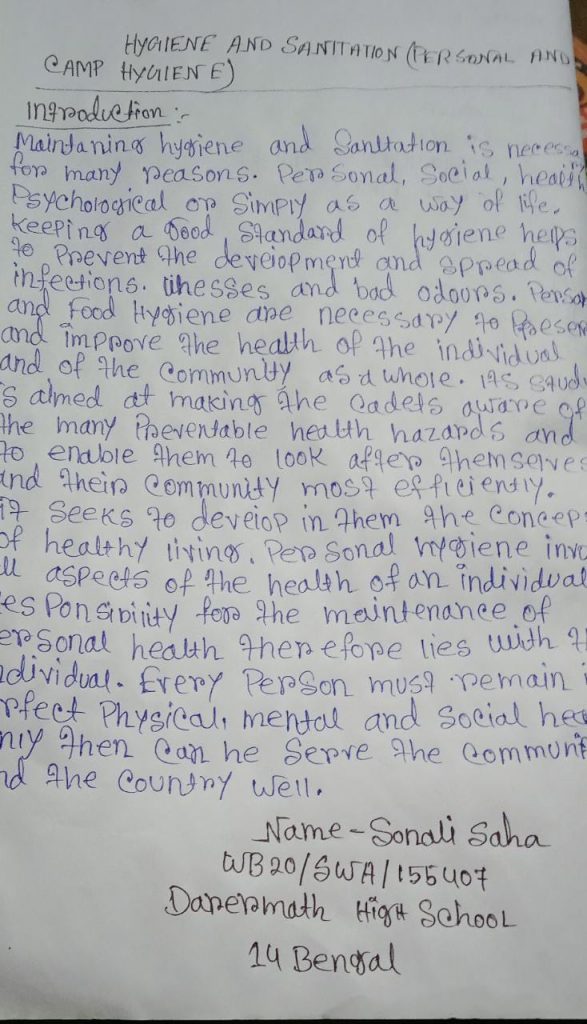 HYGIENE AND SANITATION (PERSONAL AND
CAMP HYGIENE)
Introduction :-
Maintaning hygiene and Sanitation is necessa
for many reasons. Personal, Social, health
Psychological or Simply as a way of life.
Keeping a Good Standard of hygiene helps
to Prevent the development and spread of
infections. illnesses and bad odours. Person
and Food Hygiene are necessary to Preser
and improve the health of the individual
and of the Community as a whole. its study
s aimed at making the Cadets aware of
the many Preventable health hazards and
to enable them to look after themselves
and their Community most efficiently.
it seeks to develop in them the Concep
of healthy living. Personal hygiene invo
ll aspects of the health of an individual
es Ponsibility for the maintenance of
ersonal health therefore lies with th
dividual. Every Person must remain i
rfect Physical, mental and Social hea
nly then Can he Serve the Communi
nd the Country Well.
Name - Sonali Saha
WB20/SWA/155407
Darermath High School
14 Bengal